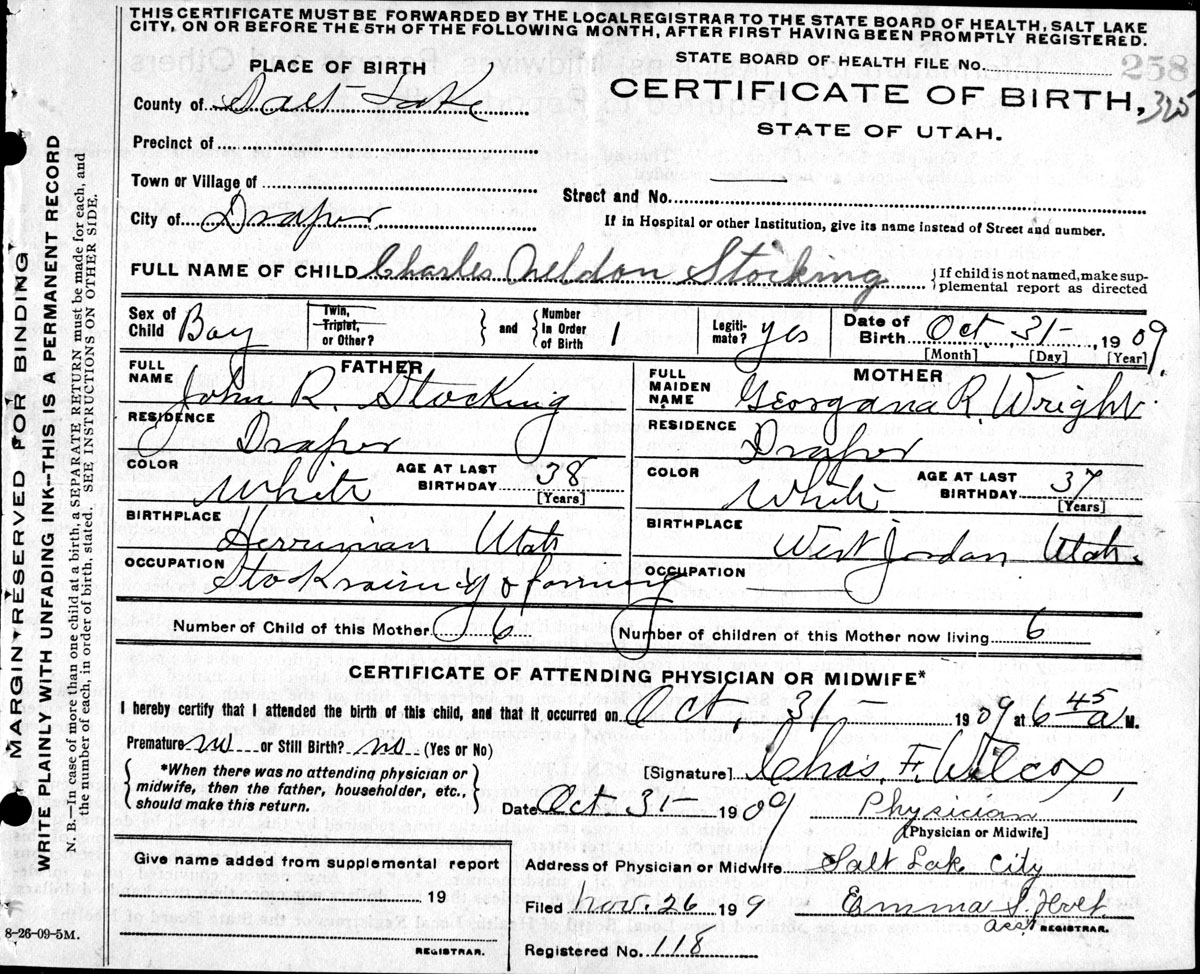 THIS CERTIFICATE MUST BE FORWARDED BY THE LOCAL REGISTRAR TO THE STATE BOARD OF HEALTH, SALT LAKE
CITY, ON OR BEFORE THE 5TH OF THE FOLLOWING MONTH, AFTER FIRST HAVING BEEN PROMPTLY REGISTERED.
MARGIN RESERVED FOR BINDING
WRITE PLAINLY WITH UNFADING INK--THIS IS A PERMANENT RECORD
N. B.--In case of more than one child at a birth, a SEPARATE RETURN must be made for each, and
the number of each, in order of birth, stated. SEE INSTRUCTIONS ON OTHER SIDE.
STATE BOARD OF HEALTH FILE NO. 258
PLACE OF BIRTH
CERTIFICATE OF BIRTH, 325
STATE OF UTAH.
County of Salt Lake
Precinct of
Town or Village of
Street and No.
City of Draper
If in Hospital or other Institution, give its name instead of Street and number.
FULL NAME OF CHILD Charles Neldon Stocking {If child is not named, make sup-
plemental report as directed
Sex of Child Boy Twin, Triplet, or Other? } and {Number in Order of Birth 1 Legiti-mate? yes Date of Birth Oct. 31-, 1909.
[Month] [Day] [Year]
FATHER
FULL NAME John R. Stocking
RESIDENCE Draper
COLOR White AGE AT LAST BIRTHDAY 38
[Years]
BIRTHPLACE Herriman Utah
OCCUPATION Stockraising & farming
MOTHER
FULL MAIDEN NAME Georgana R. Wright
RESIDENCE Draper
COLOR White AGE AT LAST BIRTHDAY 37
[Years]
BIRTHPLACE West Jordan Utah.
OCCUPATION
Number of Child of this Mother 6 Number of children of this Mother now living 6
CERTIFICATE OF ATTENDING PHYSICIAN OR MIDWIFE*
I hereby certify that I attended the birth of this child, and that it occurred on Oct. 31- 1909 at 6 45 a M.
Premature no or Still Birth? no (Yes or No)
*When there was no attending physician or
midwife, then the father, householder, etc.,
should make this return.
[Signature] Chas. F. Wilcox
Date Oct. 31- 1909 Physician
[Physician or Midwife]
Give name added from supplemental report
19
REGISTRAR.
Address of Physician or Midwife Salt Lake City
Filed Nov. 26 19 9 Emma S.
Asst REGISTRAR.
Registered No. 118
8-26-09-5M.